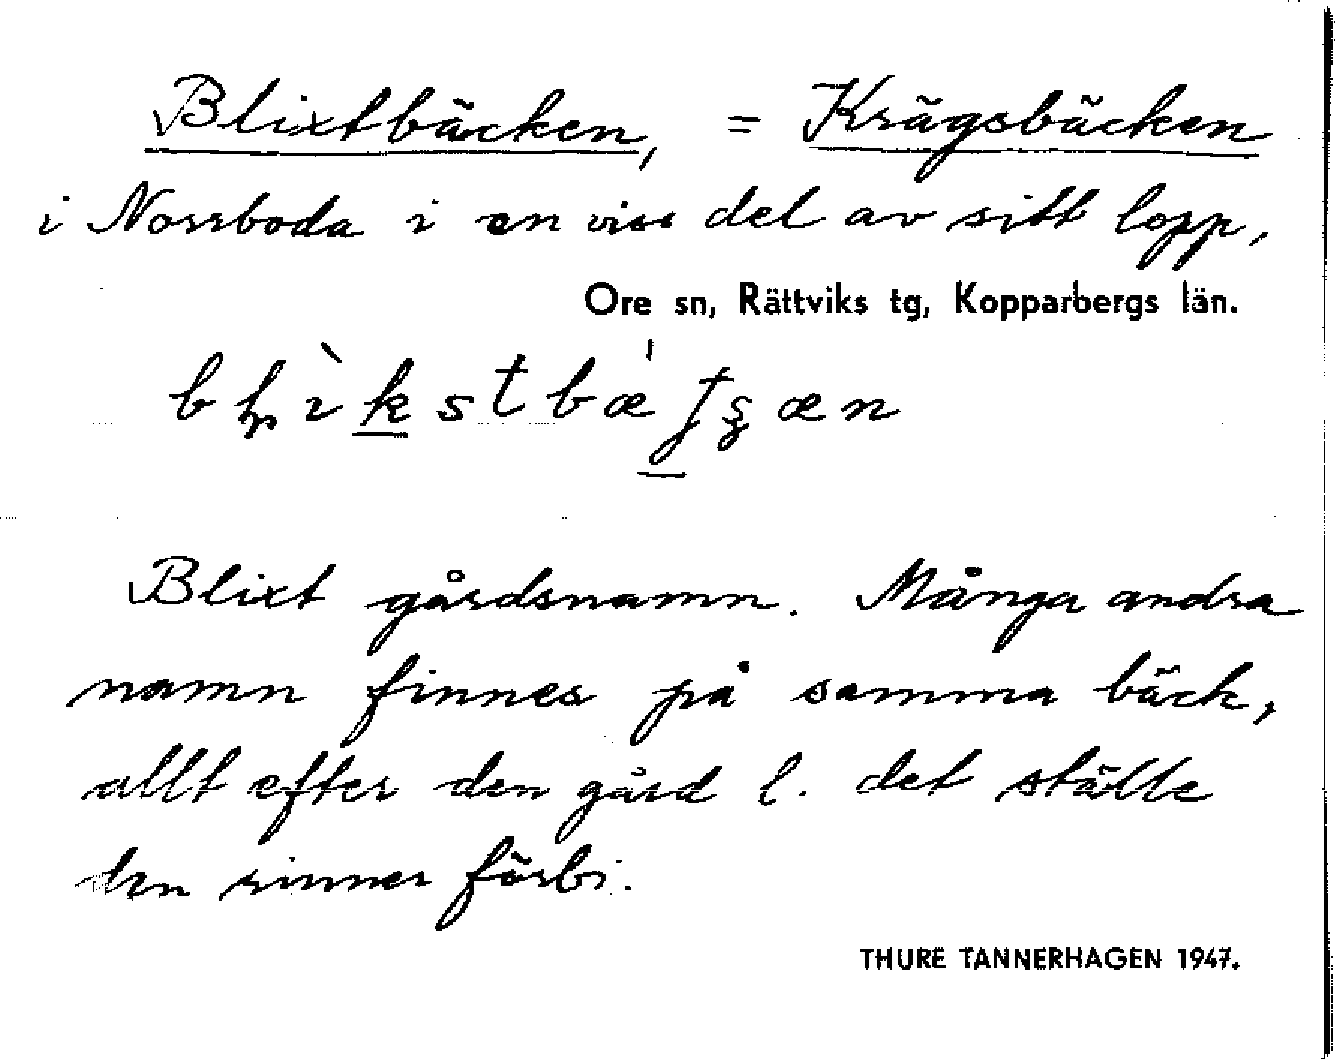 Blixtbäcken, = Krägsbäcken
i Norrboda i en viss del av sitt lopp,
Ore sn, Rättviks tg, Kopparbergs län.
Blixt gårdsnamn. Många andra
namn finnes på samma bäck,
allt efter den gård l. det ställe
den rinner förbi.
THURE TANNERHAGEN 1947.